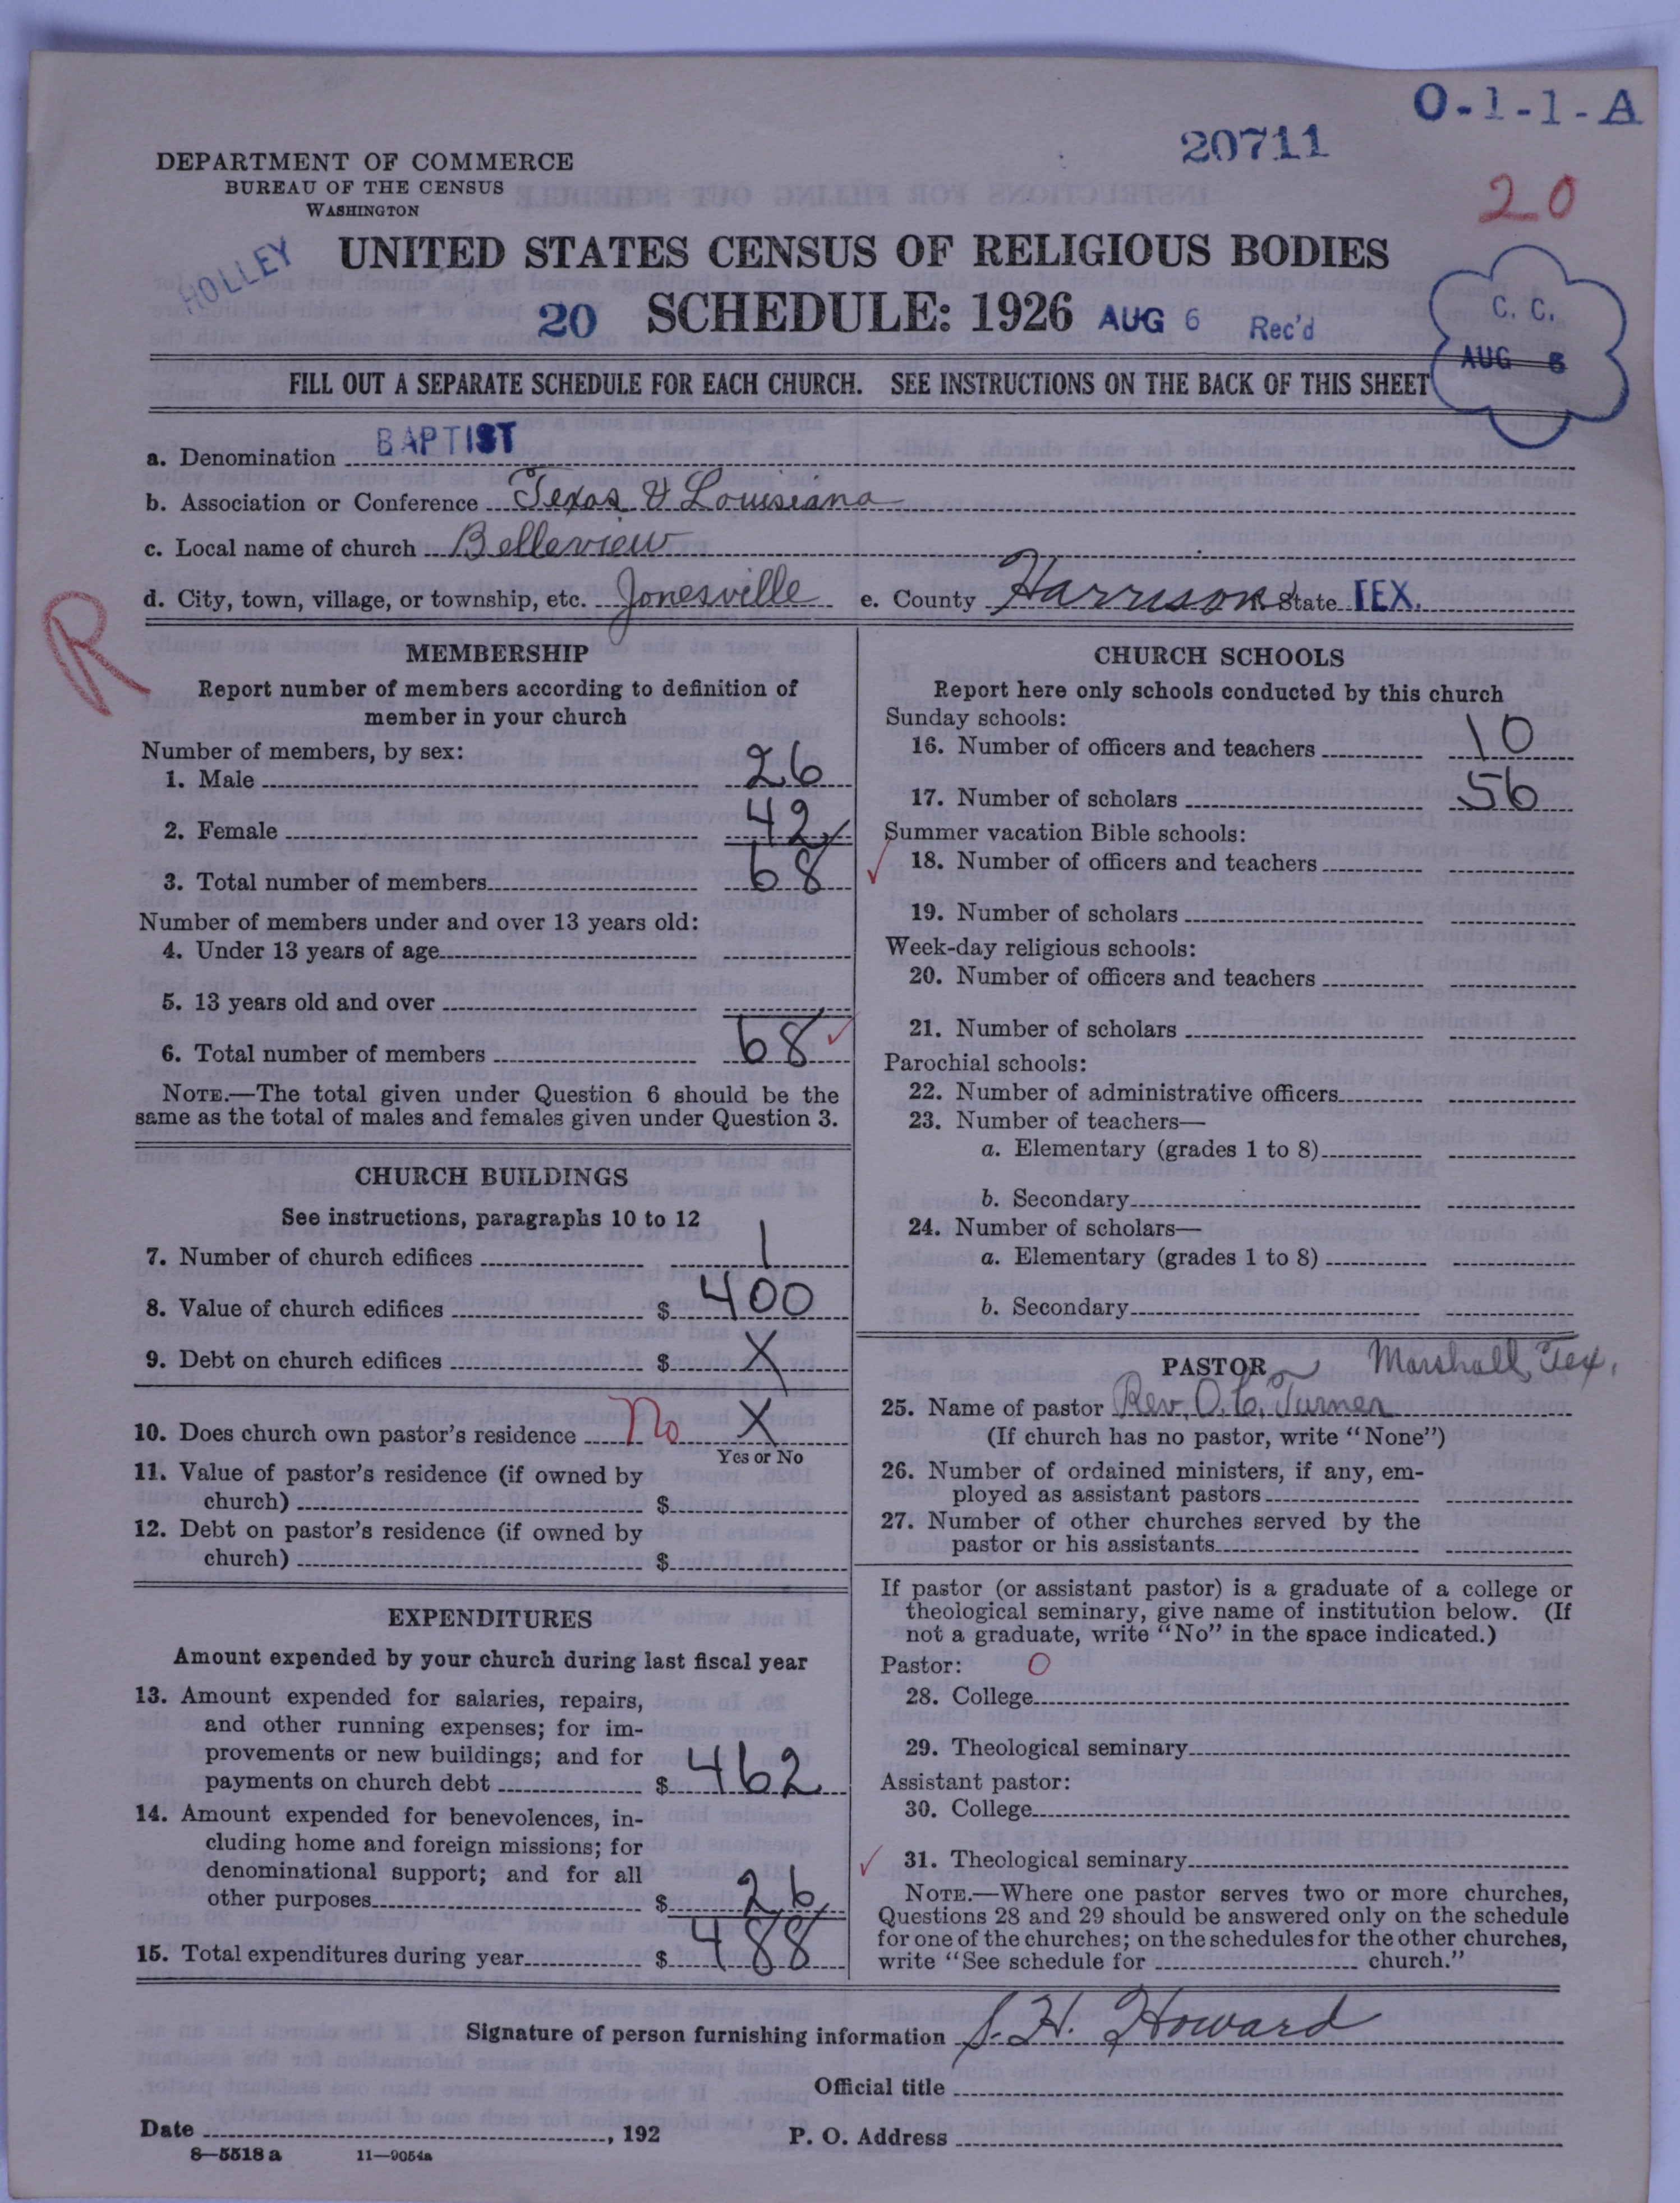 O-1-1-A
20711
20
DEPARTMENT OF COMMERCE
BUREAU OF THE CENSUS
WASHINGTON
HOLLEY
UNITED STATES CENSUS OF RELIGIOUS BODIES
20 SCHEDULE: 1926 AUG 6 Rec'd
C. C.
AUG 6
FILL OUT A SEPARATE SCHEDULE FOR EACH CHURCH. SEE INSTRUCTIONS ON THE BACK OF THIS SHEET
a. Denomination BAPTIST
b. Association or Conference Texas & Louisiana
c. Local name of church Belleview
d. City, town, village, or township, etc. Jonesville e. County Harrison State TEX.
R
MEMBERSHIP
Report number of members according to definition of
member in your church
Number of members, by sex:
1. Male 26
2. Female 42
3. Total number of members 68
Number of members under and over 13 years old:
4. Under 13 years of age
5. 13 years old and over
6. Total number of members 68
NOTE.—The total given under Question 6 should be the
same as the total of males and females given under Question 3.
CHURCH BUILDINGS
See instructions, paragraphs 10 to 12
7. Number of church edifices 1
8. Value of church edifices $ 400
9. Debt on church edifices $ X
10. Does church own pastor's residence No X
Yes or No
11. Value of pastor's residence (if owned by
church) $
12. Debt on pastor's residence (if owned by
church) $
EXPENDITURES
Amount expended by your church during last fiscal year
13. Amount expended for salaries, repairs,
and other running expenses; for im-
provements or new buildings; and for
payments on church debt $ 462
14. Amount expended for benevolences, in-
cluding home and foreign missions; for
denominational support; and for all
other purposes $ 26
15. Total expenditures during year $ 488
CHURCH SCHOOLS
Report here only schools conducted by this church
Sunday schools:
16. Number of officers and teachers 10
17. Number of scholars 56
Summer vacation Bible schools:
18. Number of officers and teachers
19. Number of scholars
Week-day religious schools:
20. Number of officers and teachers
21. Number of scholars
Parochial schools:
22. Number of administrative officers
23. Number of teachers—
a. Elementary (grades 1 to 8)
b. Secondary
24. Number of scholars—
a. Elementary (grades 1 to 8)
b. Secondary
PASTOR Marshall, Tex.
25. Name of pastor Rev. O. C. Turner
(If church has no pastor, write "None")
26. Number of ordained ministers, if any, em-
ployed as assistant pastors
27. Number of other churches served by the
pastor or his assistants
If pastor (or assistant pastor) is a graduate of a college or
theological seminary, give name of institution below. (If
not a graduate, write "No" in the space indicated.)
Pastor: O
28. College
29. Theological seminary
Assistant pastor:
30. College
31. Theological seminary
NOTE.—Where one pastor serves two or more churches,
Questions 28 and 29 should be answered only on the schedule
for one of the churches; on the schedules for the other churches,
write "See schedule for church."
Signature of person furnishing information S. H. Howard
Official title
Date , 192 P. O. Address
8—5518 a 11—9054a